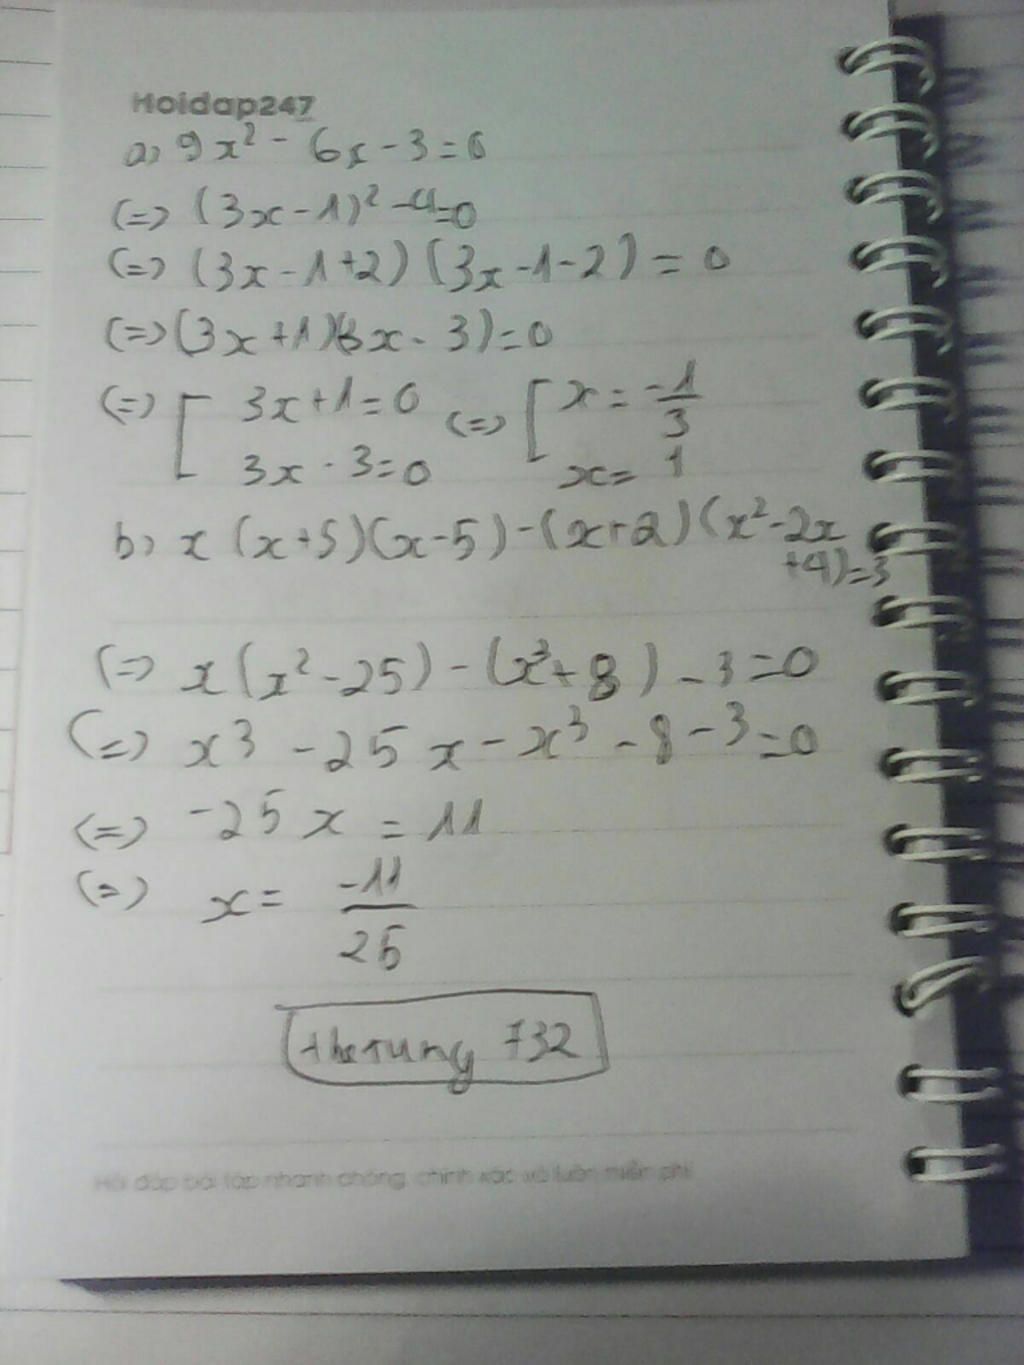 Hoidap247
a) 9x² - 6x - 3 = 0
(=) (3x - 1)² - 4 = 0
(=) (3x - 1 + 2) (3x - 1 - 2) = 0
(=) (3x + 1)(3x - 3) = 0
(=) [ 3x + 1 = 0 (=) [ x = -1/3
3x - 3 = 0 x = 1
b) x (x + 5)(x - 5) - (x + 2) (x² - 2x
+ 4) = 3
(=) x (x² - 25) - (x³ + 8) - 3 = 0
(=) x³ - 25x - x³ - 8 - 3 = 0
(=) -25x = 11
(=) x = -11/25
therung 732
Hỏi đáp bài tập nhanh chóng, chính xác và luôn miễn phí